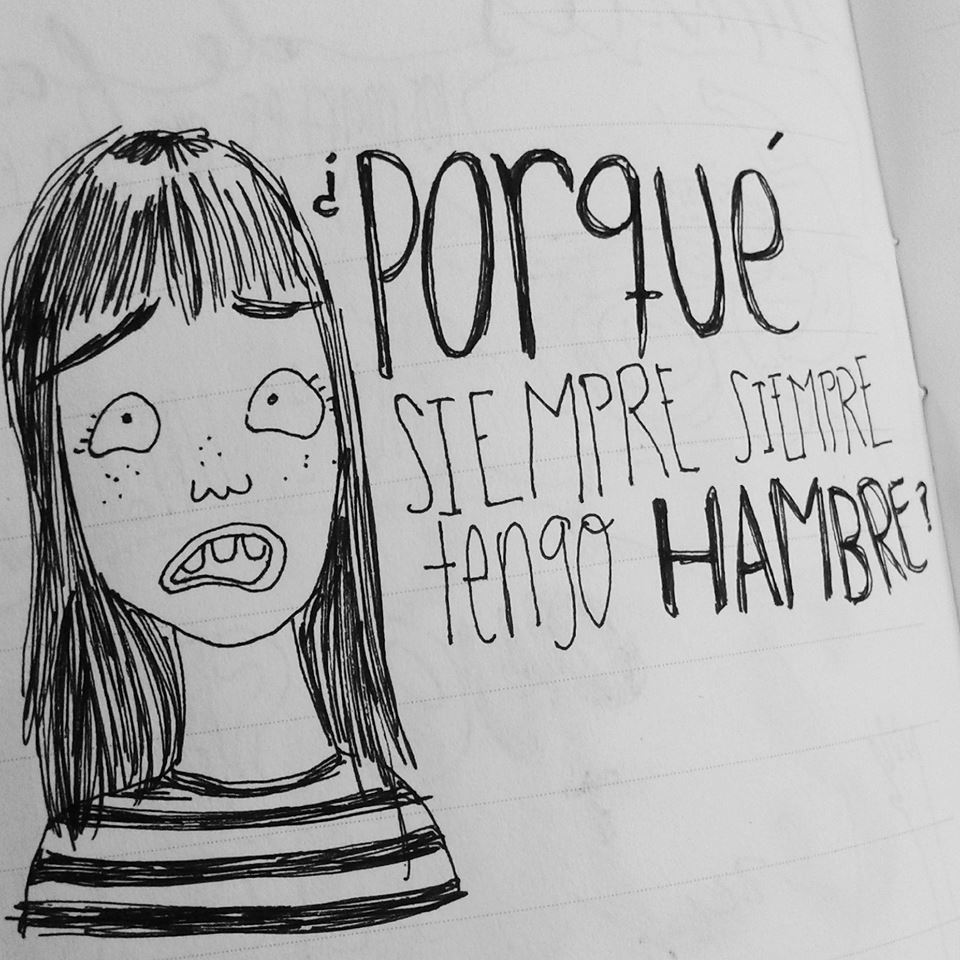 ¿Porqué
SIEMPRE SIEMPRE
tengo HAMBRE?